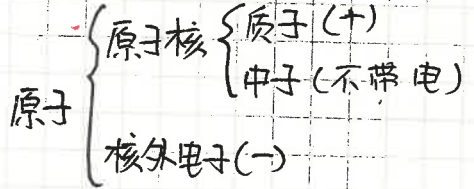 原子
原子核
质子(+)
中子(不带电)
核外电子(-)